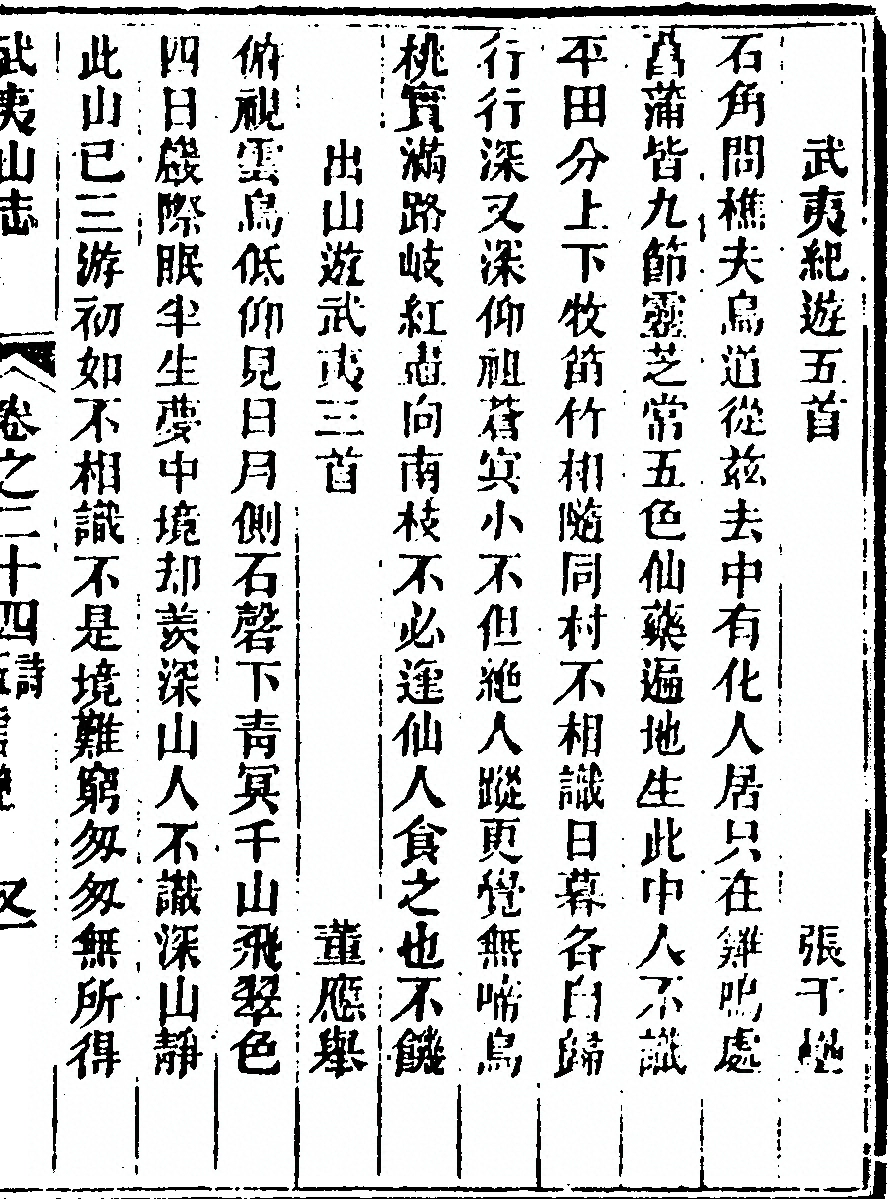 武夷紀遊五首 張于壘
石角問樵夫鳥道從兹去中有化人居只在雞鳴處
菖蒲皆九節靈芝常五色仙藥遍地生此中人不識
平田分上下牧笛竹相隨同村不相識日暮各自歸
行行深又深仰祖蒼㝠小不但絶人蹤更覺無啼鳥
桃實滿路岐紅走向南枝不必逢仙人食之也不饑
出山遊武夷三首 董應舉
俯視雲鳥低仰見日月側石磬下青冥千山飛翠色
四日巖際眠半生夢中境却羨深山人不識深山靜
此山已三游初如不相識不是境難窮匆匆無所得
武夷山志 卷之二十四 詩 又一